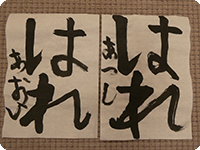 はれ
あつし
はれ
あおい